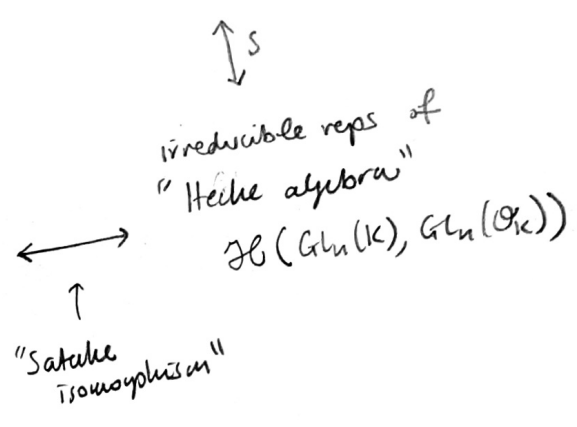 S
irreducible reps of
"Hecke algebra"
ℋ(GLn(K), GLn(𝒪K))
"Satake
isomorphism"